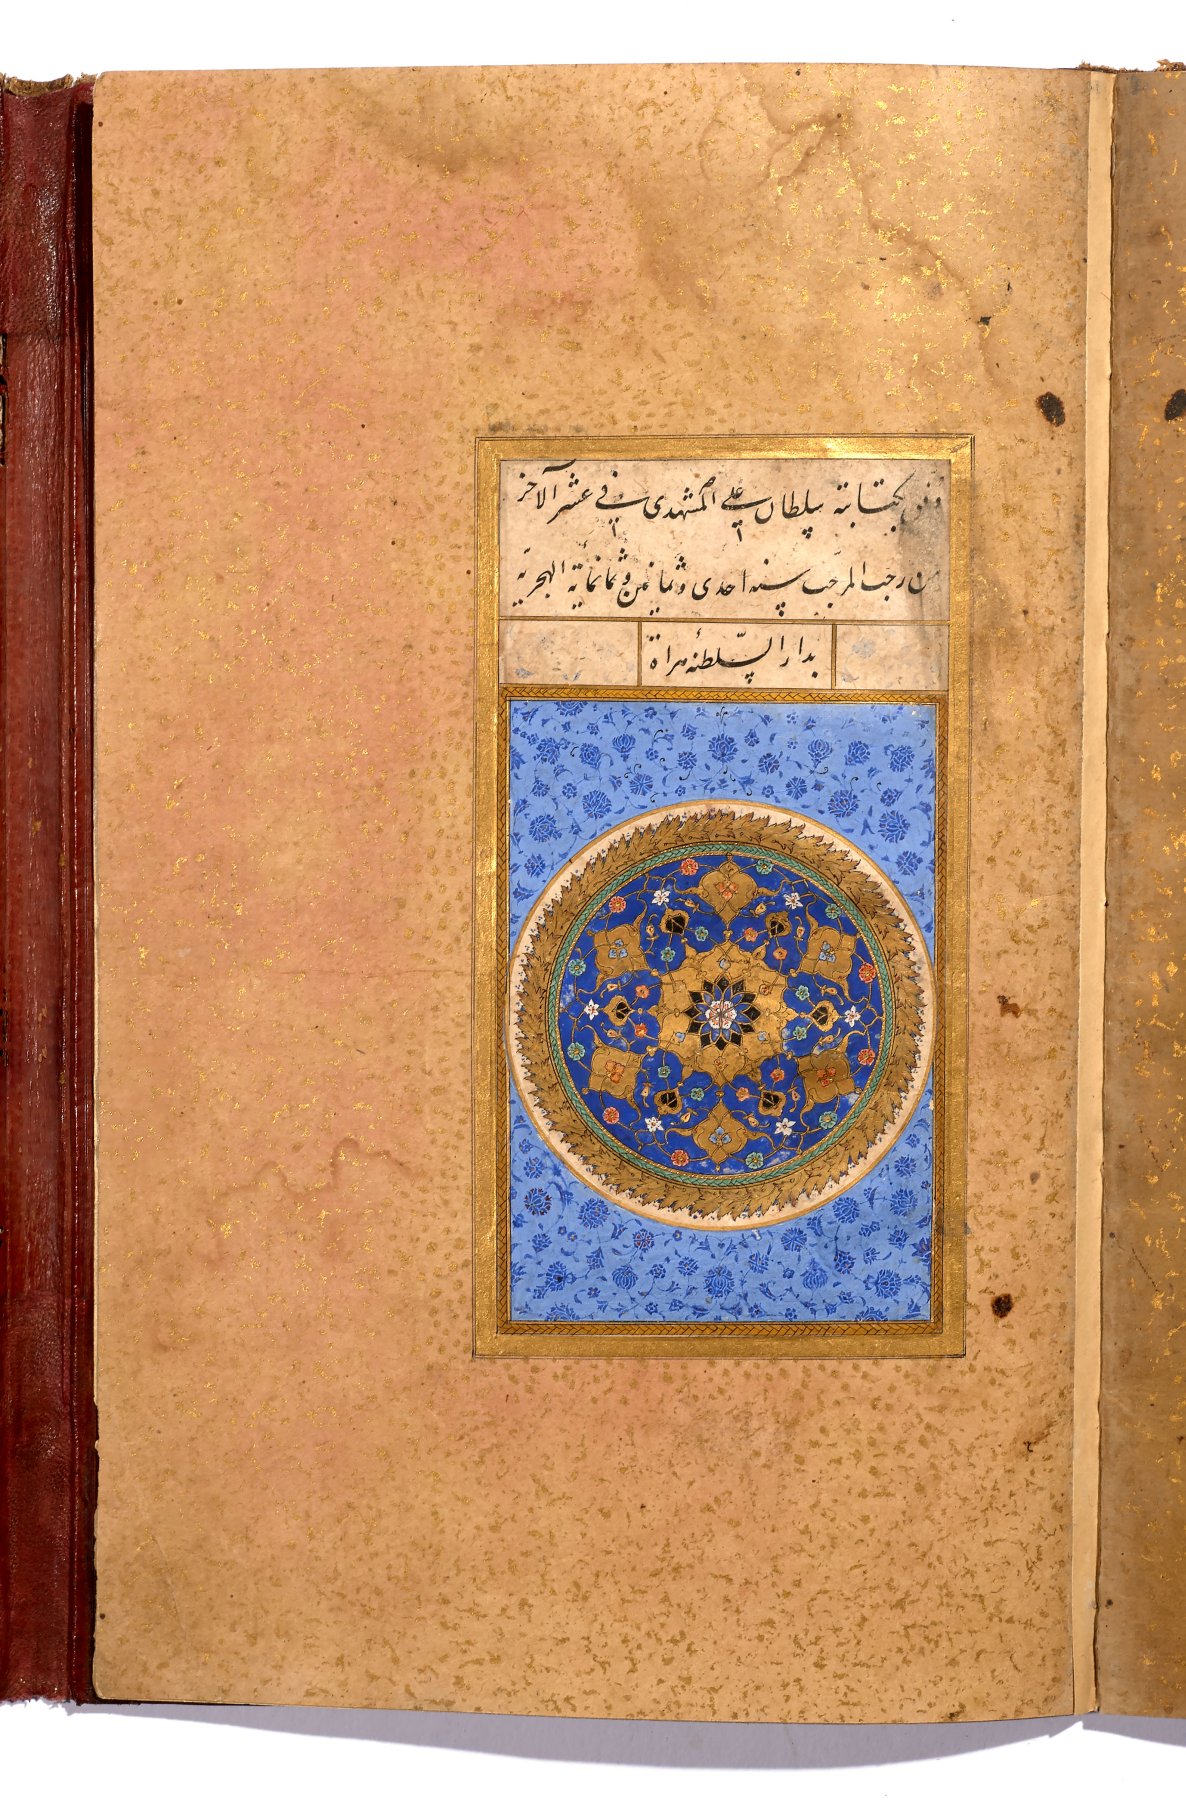 بكتابة سلطان علي المشهدى في عشر الآخر
من رجب المرجّب سنه احدى وثمانين وثمانمائة الهجريّة
بدار السّلطنه هراة